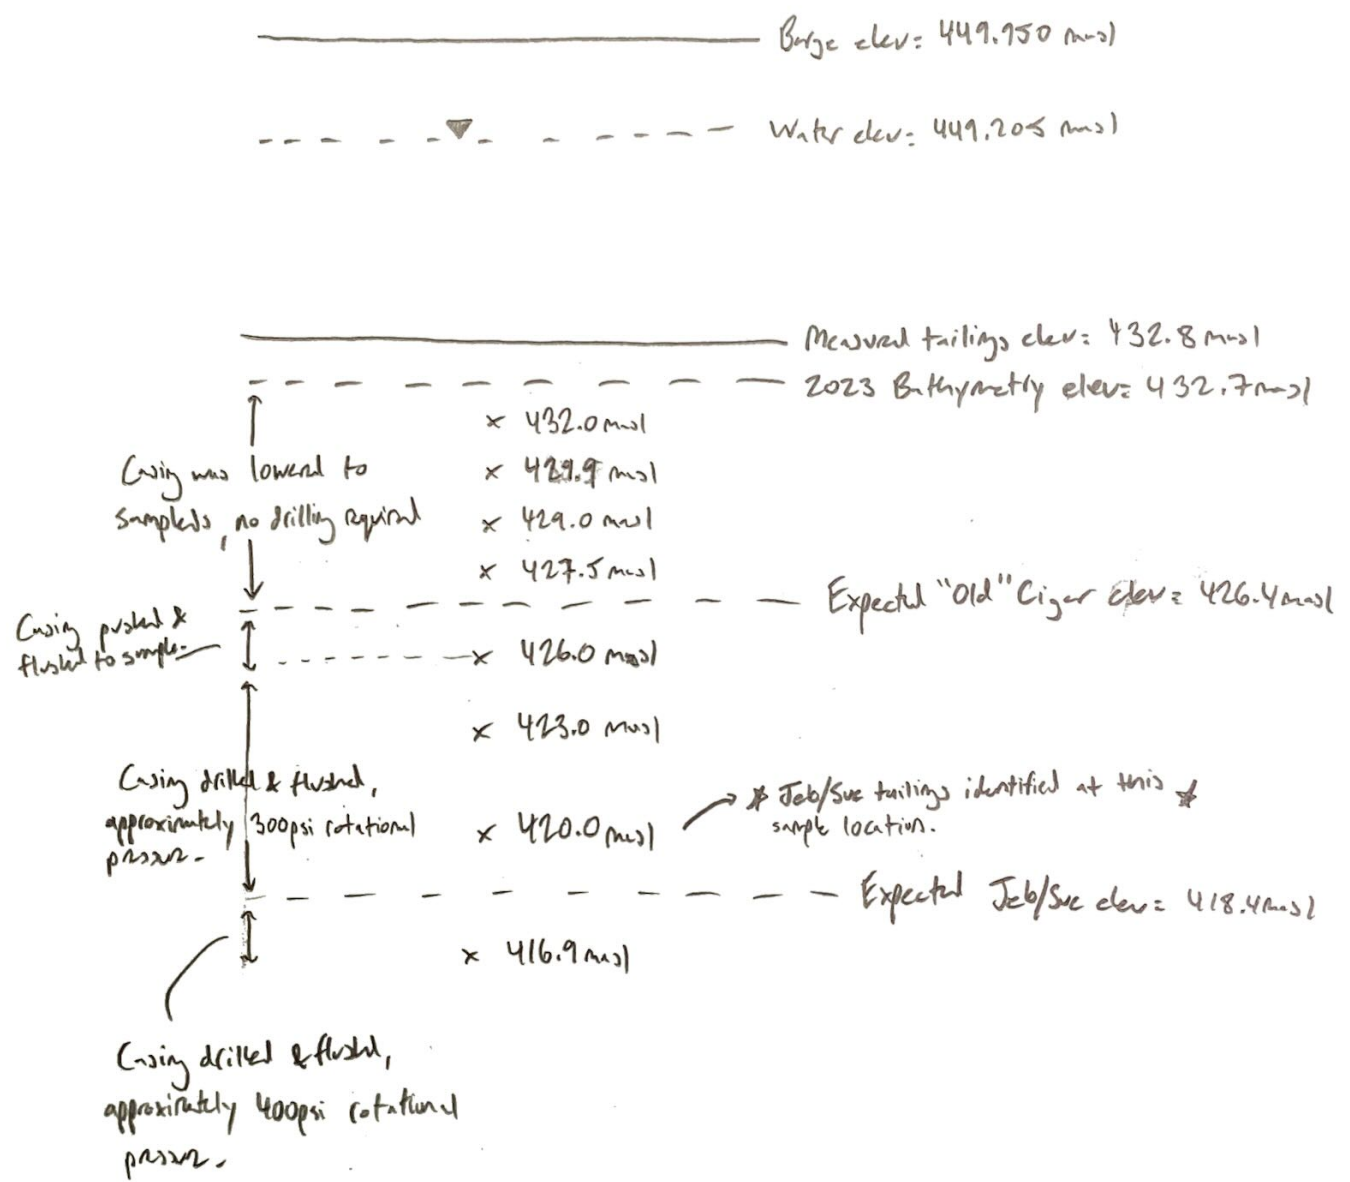 Barge elev: 449.950 masl
Water elev: 449.205 masl
Measured tailings elev: 432.8 masl
2023 Bathymetry elev: 432.7 masl
x 432.0 masl
Casing was lowered to
sampleds, no drilling required
x 429.9 masl
x 429.0 masl
x 427.5 masl
Expected "Old" Cigar elev: 426.4 masl
Casing pushed &
flushed to sample.
x 426.0 masl
x 423.0 masl
Casing drilled & flushed,
approximately 300psi rotational
pressure.
x 420.0 masl
* Jeb/Sue tailings identified at this *
sample location.
Expected Jeb/Sue elev: 418.4 masl
x 416.9 masl
Casing drilled & flushed,
approximately 400psi rotational
pressure.